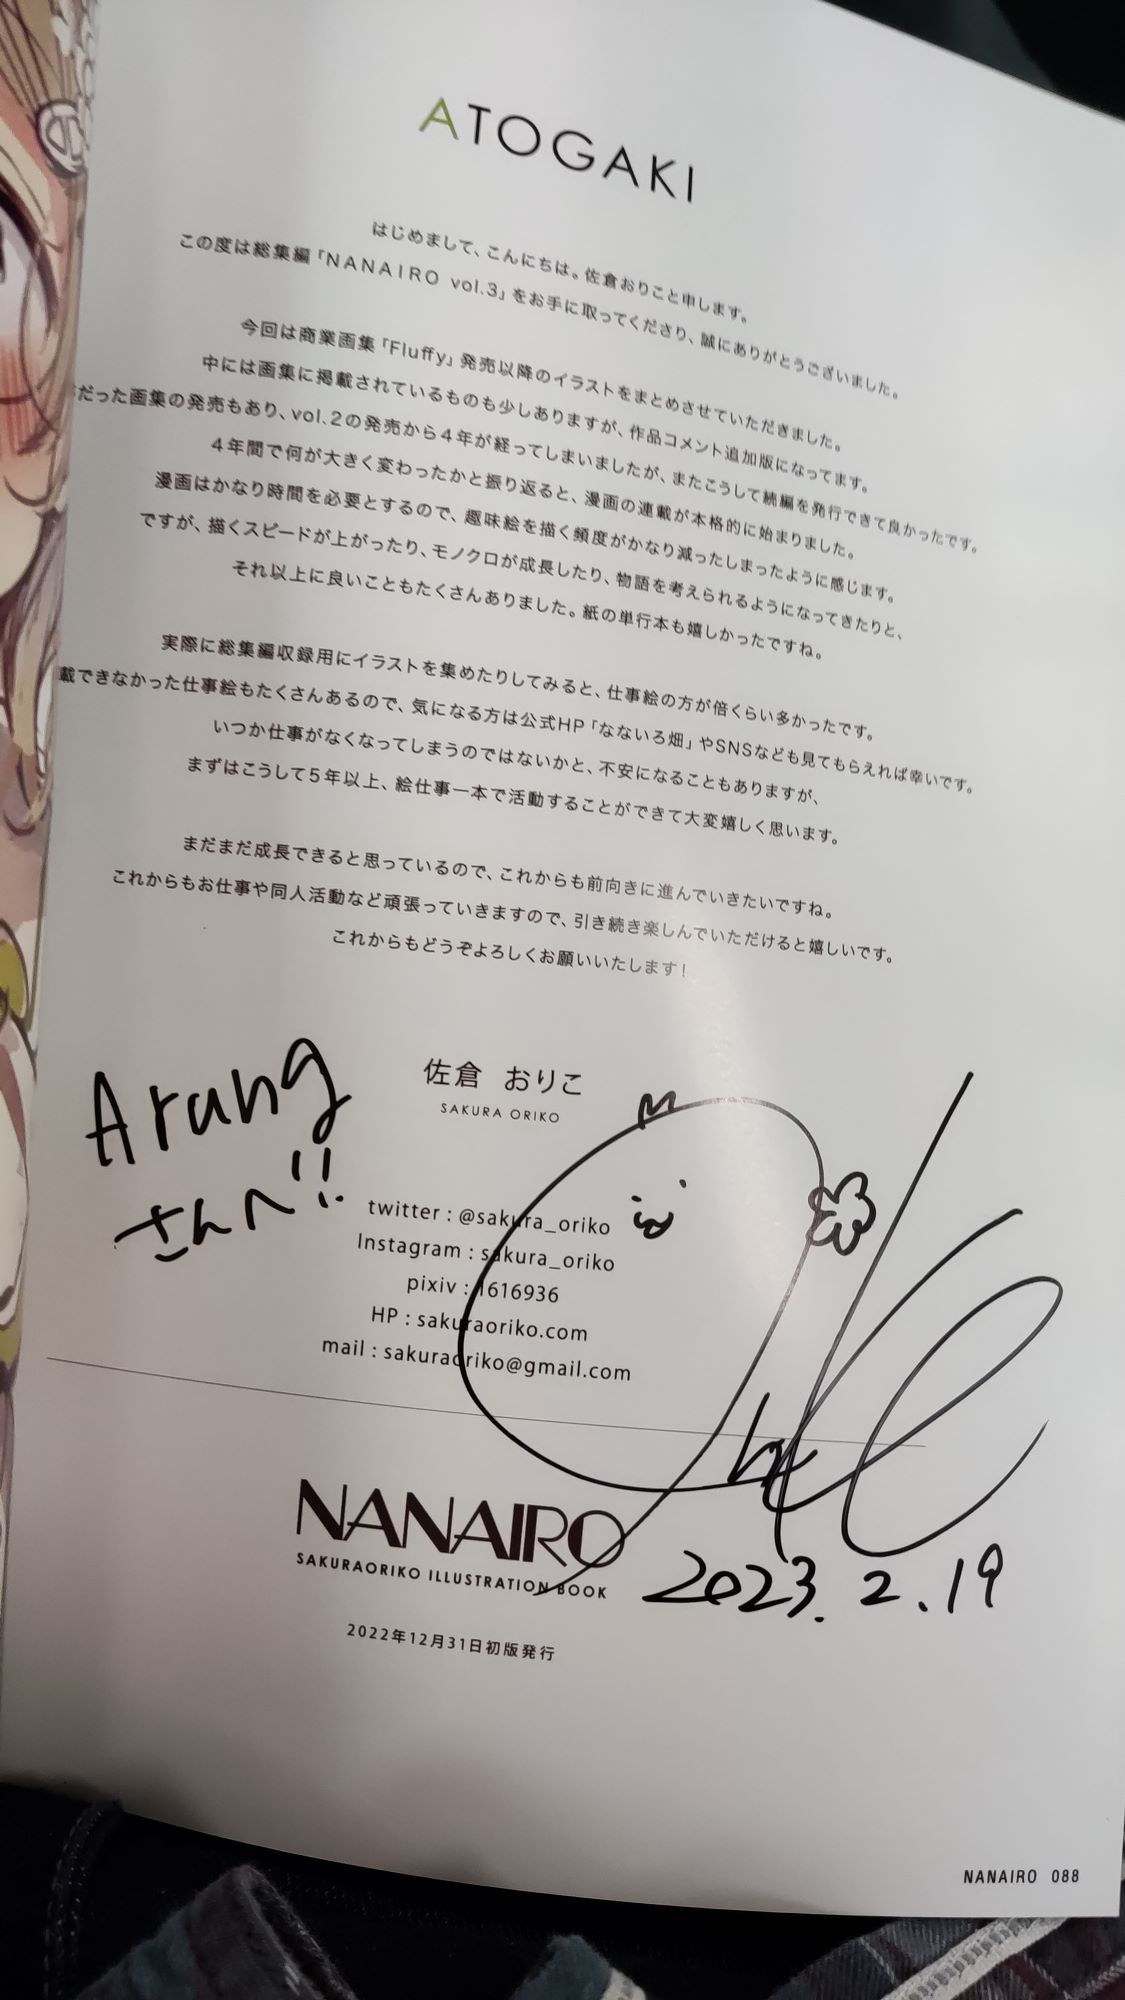 ATOGAKI
はじめまして、こんにちは。佐倉おりこと申します。
この度は総集編「NANAIRO vol.3」をお手に取ってくださり、誠にありがとうございました。
今回は商業画集「Fluffy」発売以降のイラストをまとめさせていただきました。
中には画集に掲載されているものも少しありますが、作品コメント追加版になってます。
だった画集の発売もあり、vol.2の発売から4年が経ってしまいましたが、またこうして続編を発行できて良かったです。
4年間で何が大きく変わったかと振り返ると、漫画の連載が本格的に始まりました。
漫画はかなり時間を必要とするので、趣味絵を描く頻度がかなり減ったしまったように感じます。
ですが、描くスピードが上がったり、モノクロが成長したり、物語を考えられるようになってきたりと、
それ以上に良いこともたくさんありました。紙の単行本も嬉しかったですね。
実際に総集編収録用にイラストを集めたりしてみると、仕事絵の方が倍くらい多かったです。
載できなかった仕事絵もたくさんあるので、気になる方は公式HP「なないろ畑」やSNSなども見てもらえれば幸いです。
いつか仕事がなくなってしまうのではないかと、不安になることもありますが、
まずはこうして5年以上、絵仕事一本で活動することができて大変嬉しく思います。
まだまだ成長できると思っているので、これからも前向きに進んでいきたいですね。
これからもお仕事や同人活動など頑張っていきますので、引き続き楽しんでいただけると嬉しいです。
これからもどうぞよろしくお願いいたします！
Arung
さんへ!!
佐倉 おりこ
SAKURA ORIKO
twitter : @sakura_oriko
Instagram : sakura_oriko
pixiv : 1616936
HP : sakuraoriko.com
mail : sakuraoriko@gmail.com
NANAIRO
SAKURAORIKO ILLUSTRATION BOOK
2023. 2. 19
2022年12月31日初版発行
NANAIRO 088